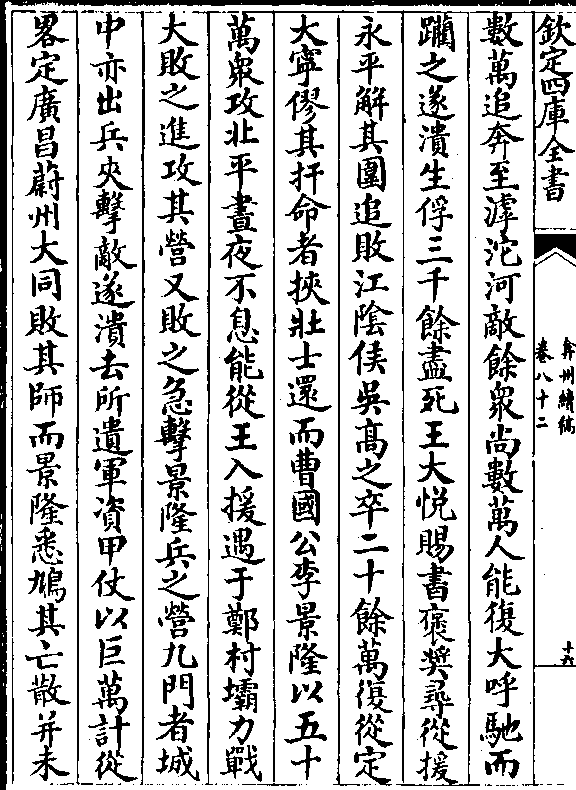 欽定四庫全書
弇州續稿
卷八十二
十六
數萬追奔至滹沱河敵餘衆尚數萬人能復大呼馳而
躪之遂潰生俘三千餘盡死王大悅賜書褒奬尋從援
永平解其圍追敗江陰侯吳髙之卒二十餘萬復從定
大寧僇其扞命者挾壯士還而曹國公李景隆以五十
萬衆攻北平晝夜不息能從王入援遇于鄭村壩力戰
大敗之進攻其營又敗之急擊景隆兵之營九門者城
中亦出兵夾擊敵遂潰去所遺軍資甲仗以巨萬計從
畧定廣昌蔚州大同敗其師而景隆悉鳩其亡散并未